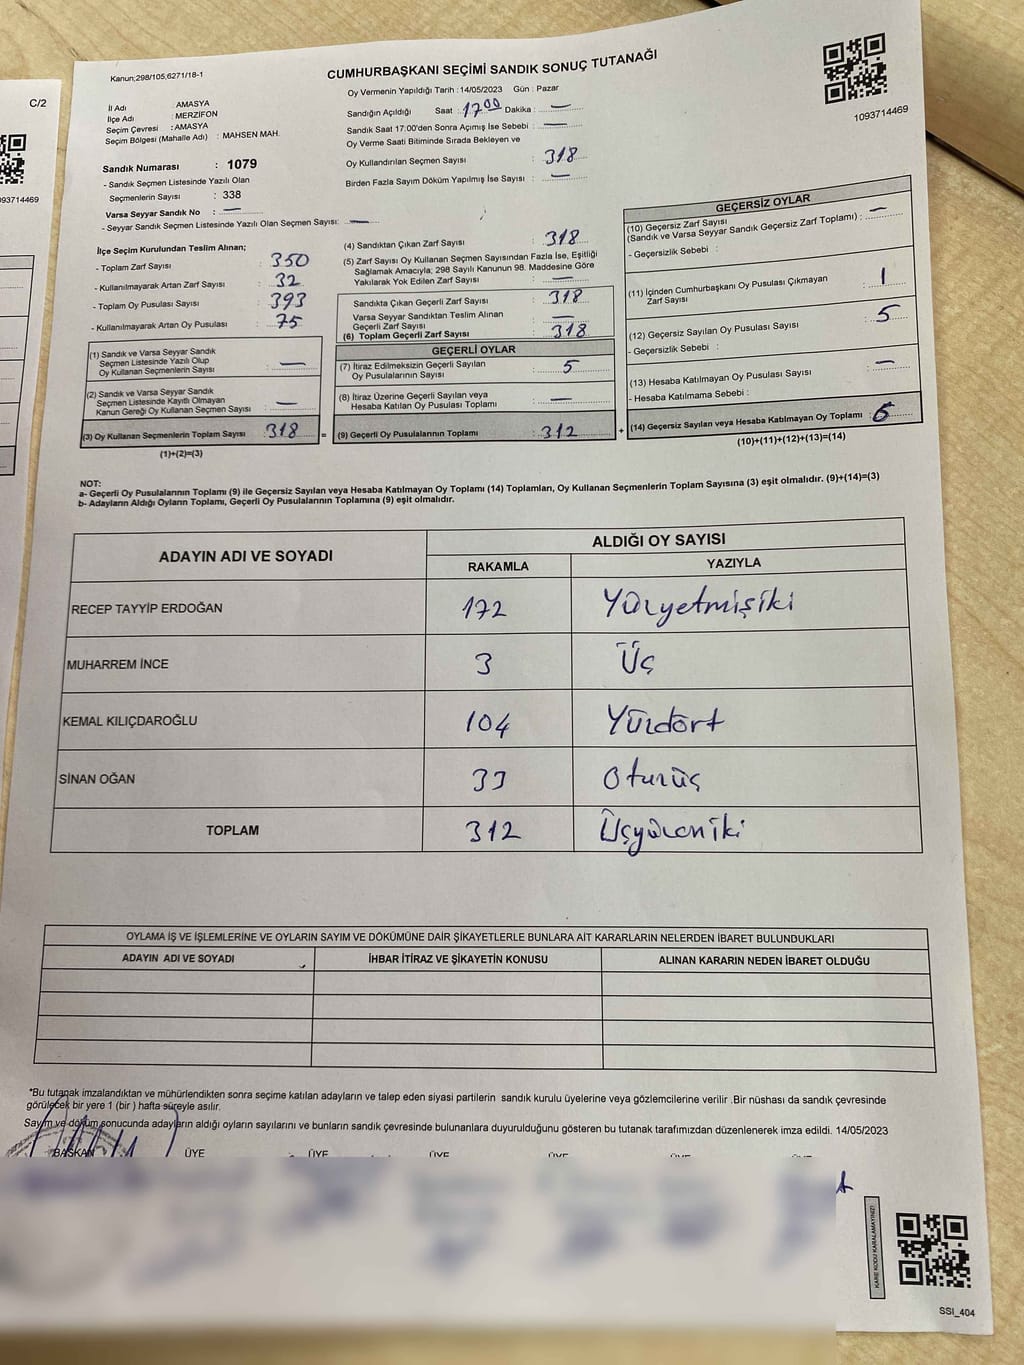 C/2
093714469
Kanun;298/105;6271/18-1
CUMHURBAŞKANI SEÇİMİ SANDIK SONUÇ TUTANAĞI
1093714469
İl Adı : AMASYA
İlçe Adı : MERZİFON
Seçim Çevresi : AMASYA
Seçim Bölgesi (Mahalle Adı) : MAHSEN MAH.
Sandık Numarası : 1079
- Sandık Seçmen Listesinde Yazılı Olan
Seçmenlerin Sayısı : 338
Varsa Seyyar Sandık No : —
- Seyyar Sandık Seçmen Listesinde Yazılı Olan Seçmen Sayısı: —
Oy Vermenin Yapıldığı Tarih : 14/05/2023 Gün : Pazar
Sandığın Açıldığı Saat : 17 00 Dakika : —
Sandık Saat 17:00'den Sonra Açımış İse Sebebi : —
Oy Verme Saati Bitiminde Sırada Bekleyen ve
Oy Kullandırılan Seçmen Sayısı : 318
Birden Fazla Sayım Döküm Yapılmış İse Sayısı : —
İlçe Seçim Kurulundan Teslim Alınan;
- Toplam Zarf Sayısı : 350
- Kullanılmayarak Artan Zarf Sayısı : 32
- Toplam Oy Pusulası Sayısı : 393
- Kullanılmayarak Artan Oy Pusulası : 75
(1) Sandık ve Varsa Seyyar Sandık
Seçmen Listesinde Yazılı Olup
Oy Kullanan Seçmenlerin Sayısı : —
(2) Sandık ve Varsa Seyyar Sandık
Seçmen Listesinde Kayıtlı Olmayan
Kanun Gereği Oy Kullanan Seçmen Sayısı : —
(3) Oy Kullanan Seçmenlerin Toplam Sayısı : 318 =
(1)+(2)=(3)
(4) Sandıktan Çıkan Zarf Sayısı : 318
(5) Zarf Sayısı Oy Kullanan Seçmen Sayısından Fazla İse, Eşitliği
Sağlamak Amacıyla; 298 Sayılı Kanunun 98. Maddesine Göre
Yakılarak Yok Edilen Zarf Sayısı : —
Sandıkta Çıkan Geçerli Zarf Sayısı : 318
Varsa Seyyar Sandıktan Teslim Alınan
Geçerli Zarf Sayısı : —
(6) Toplam Geçerli Zarf Sayısı : 318
GEÇERLİ OYLAR
(7) İtiraz Edilmeksizin Geçerli Sayılan
Oy Pusulalarının Sayısı : 5
(8) İtiraz Üzerine Geçerli Sayılan veya
Hesaba Katılan Oy Pusulası Toplamı : —
(9) Geçerli Oy Pusulalarının Toplamı : 312 +
GEÇERSİZ OYLAR
(10) Geçersiz Zarf Sayısı
(Sandık ve Varsa Seyyar Sandık Geçersiz Zarf Toplamı) : —
- Geçersizlik Sebebi :
(11) İçinden Cumhurbaşkanı Oy Pusulası Çıkmayan
Zarf Sayısı : 1
(12) Geçersiz Sayılan Oy Pusulası Sayısı : 5
- Geçersizlik Sebebi :
(13) Hesaba Katılmayan Oy Pusulası Sayısı : —
- Hesaba Katılmama Sebebi :
(14) Geçersiz Sayılan veya Hesaba Katılmayan Oy Toplamı : 6
(10)+(11)+(12)+(13)=(14)
NOT:
a- Geçerli Oy Pusulalarının Toplamı (9) ile Geçersiz Sayılan veya Hesaba Katılmayan Oy Toplamı (14) Toplamları, Oy Kullanan Seçmenlerin Toplam Sayısına (3) eşit olmalıdır. (9)+(14)=(3)
b- Adayların Aldığı Oyların Toplamı, Geçerli Oy Pusulalarının Toplamına (9) eşit olmalıdır.
ADAYIN ADI VE SOYADI ALDIĞI OY SAYISI
RAKAMLA YAZIYLA
RECEP TAYYİP ERDOĞAN 172 Yüzyetmişiki
MUHARREM İNCE 3 Üç
KEMAL KILIÇDAROĞLU 104 Yüzdört
SİNAN OĞAN 33 Otuzüç
TOPLAM 312 Üçyüzoniki
OYLAMA İŞ VE İŞLEMLERİNE VE OYLARIN SAYIM VE DÖKÜMÜNE DAİR ŞİKAYETLERLE BUNLARA AİT KARARLARIN NELERDEN İBARET BULUNDUKLARI
ADAYIN ADI VE SOYADI İHBAR İTİRAZ VE ŞİKAYETİN KONUSU ALINAN KARARIN NEDEN İBARET OLDUĞU
*Bu tutanak imzalandıktan ve mühürlendikten sonra seçime katılan adayların ve talep eden siyasi partilerin sandık kurulu üyelerine veya gözlemcilerine verilir .Bir nüshası da sandık çevresinde
görülecek bir yere 1 (bir ) hafta süreyle asılır.
Sayım ve döküm sonucunda adayların aldığı oyların sayılarını ve bunların sandık çevresinde bulunanlara duyurulduğunu gösteren bu tutanak tarafımızdan düzenlenerek imza edildi. 14/05/2023
BAŞKAN ÜYE ÜYE ÜYE ÜYE ÜYE ÜYE
KARE KODU KARALAMAYINIZ!
SSI_404